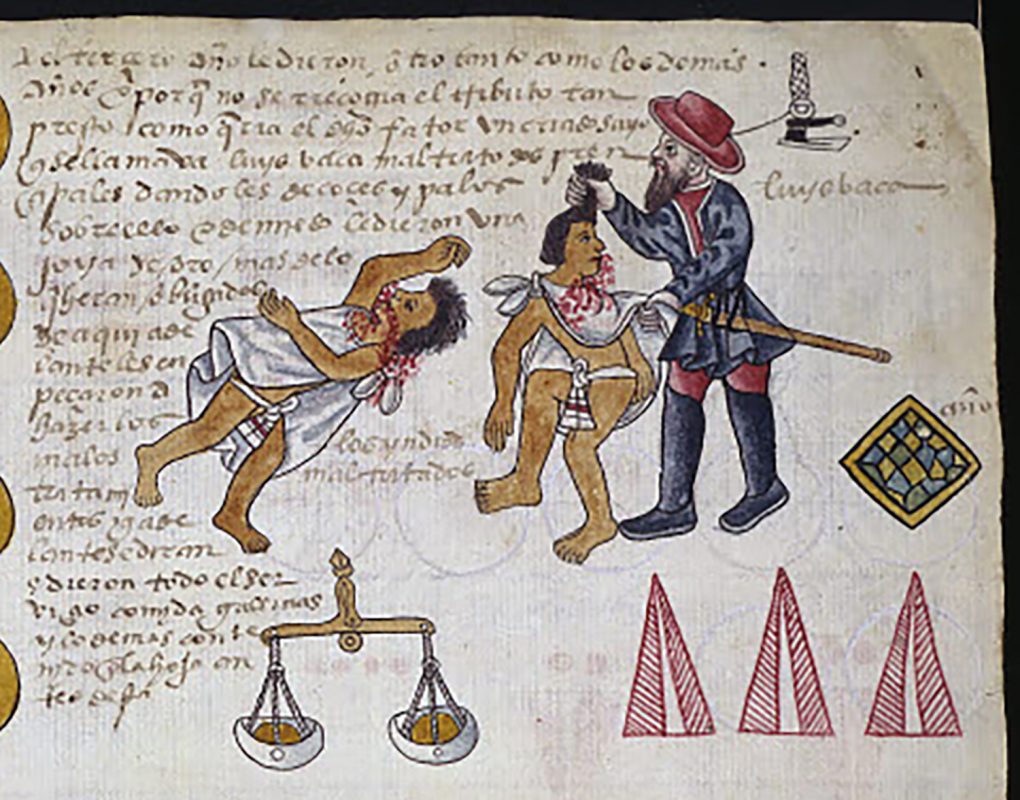 A el tercero año le dieron otro tanto como los demas
años y porq̃ no se recogia el tributo tan
presto como q̃ria el dho fator un criado suyo
q̃ se llamava luys vaca mal trato los prin
cipales dandoles de coces y palos
sobre ello y demas le dieron una
joya de oro mas de lo
q̃ heran obligados
de aqui ade
lante les en
peçaron a
hazer los
malos
tratami
entos y ade
lante se diran
y dieron todo el ser
viçio comida gallinas
y lo demas conte
nido en la hoja an
tes desta
luys vaca
los yndios
mal tratados
año